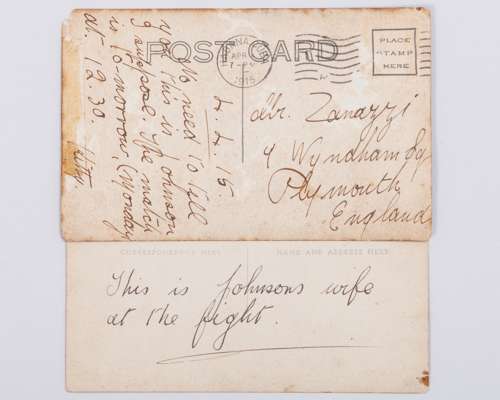 POST CARD
PLACE
STAMP
HERE
APR
1915
4. 4. 15.
No need to tell
you this is Johnson
I suppose. The match
is to-morrow, (Monday
at 12.30.
Mr. Zanazzi
9 Wyndham Sq
Plymouth
England
CORRESPONDENCE HERE
NAME AND ADDRESS HERE
This is Johnsons wife
at the fight.